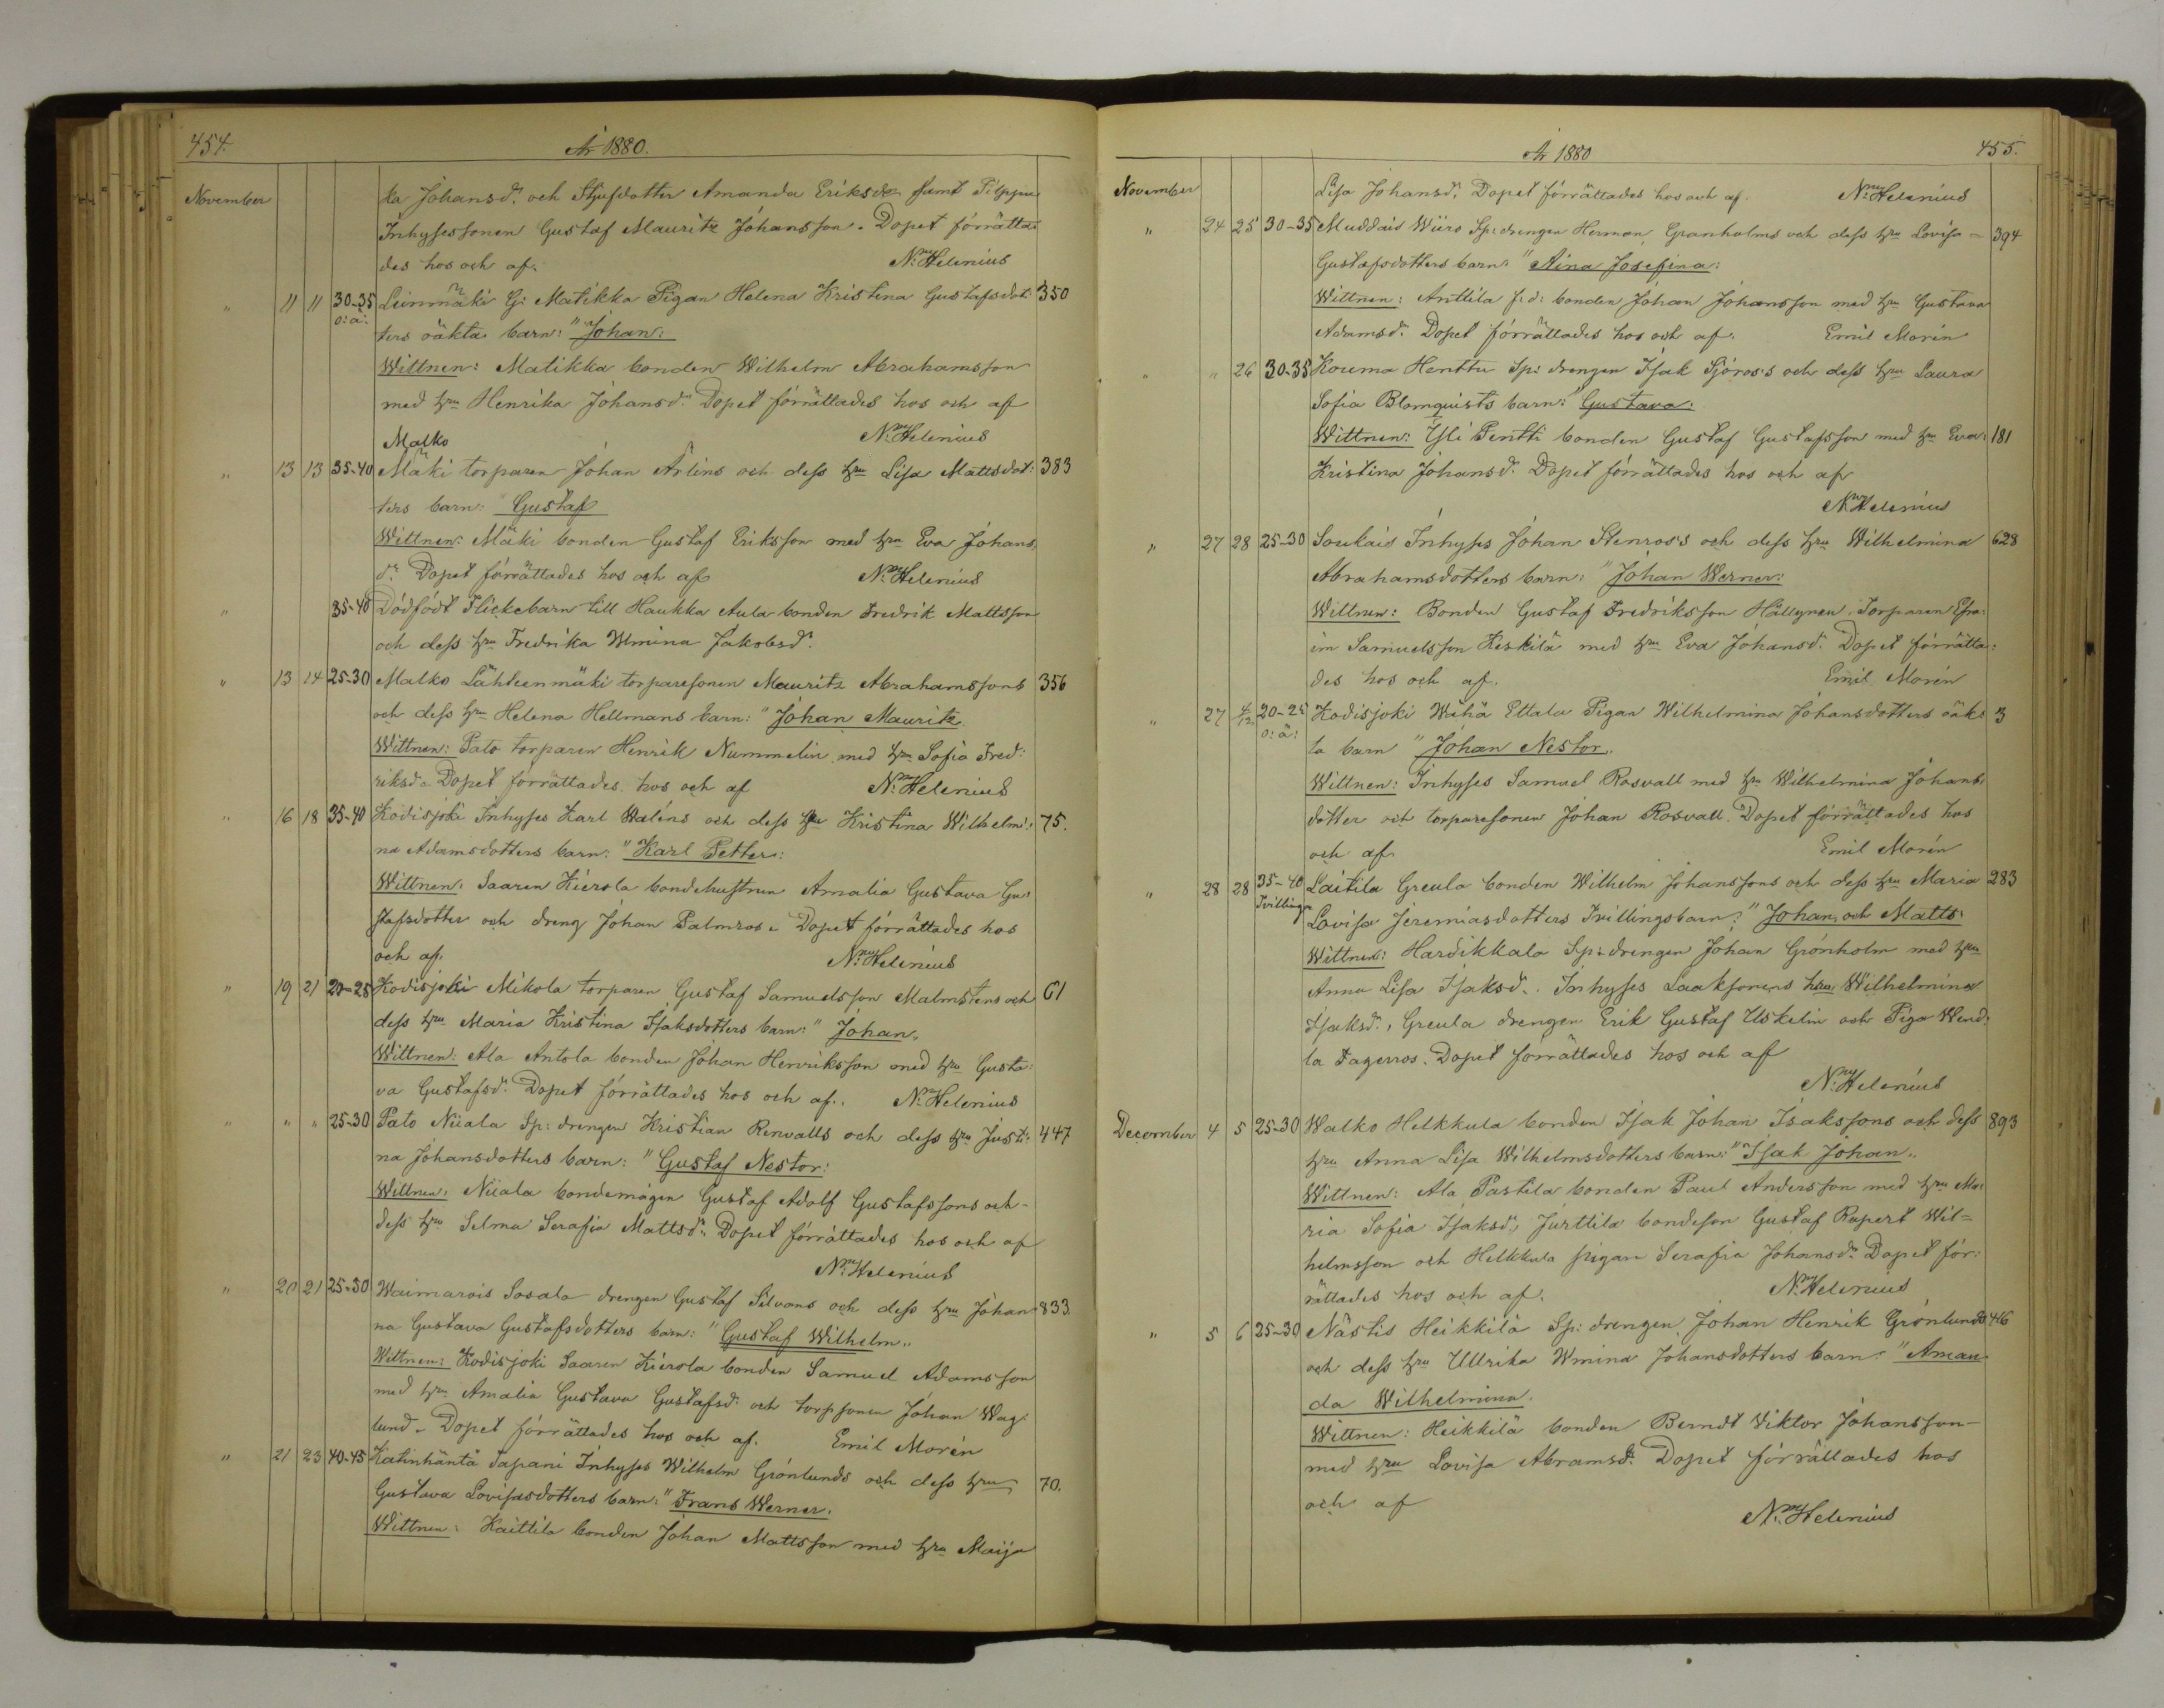 454.
År 1880.
November
ka Johansd:r och Styfdotter Amanda Eriksd:r samt Filppu
Inhysessonen Gustaf Mauritz Johansson. Dopet förrätta-
des hos och af. N:ny Helenius
" 11 11 30-35 Leinmäki G: Matikka Pigan Helena Kristina Gustafsdot: 350
o: ä:
ters oäkta barn: "Johan:
Wittnen: Matikka bonden Wilhelm Abrahamsson
med hru Henrika Johansd:r Dopet förrättades hos och af
N:ny Helenius
Malko
" 13 13 35-40 Mäki torparen Johan Arlins och dess hru Lisa Mattsdot: 383
ters barn: Gustaf
Wittnen: Mäki bonden Gustaf Eriksson med hru Eva Johans
d:r Dopet förrättades hos och af N:ny Helenius
" 35-40 Dödfödt Flickebarn till Haukka Aula bonden Fredrik Mattsson
och dess hru Fredrika Wmina Jakobsd:r
" 13 14 25-30 Malko Lähteenmäki torparesonen Mauritz Abrahamssons 356
och dess hru Helena Hellmans barn: "Johan Mauritz
Wittnen: Pato torparen Henrik Nummelin med hru Sofia Fred:
riksd:r Dopet förrättades hos och af N:ny Helenius
" 16 18 35-40 Kodisjoki Inhyses Karl Waléns och dess hru Kristina Wilhelmi: 75.
na Adamsdotters barn: "Karl Petter:
Wittnen: Saaren Kierola bondehustrun Amalia Gustava Gu:
stafsdotter och dreng Johan Palmros. Dopet förrättades hos
och af. N:ny Helenius
" 19 21 20-25 Kodisjoki Mikola torparen Gustaf Samuelsson Malmstens och 61
dess hru Maria Kristina Isaksdotters barn: "Johan"
Wittnen: Ala Antola bonden Johan Henriksson med hru Gusta:
va Gustafsd:r Dopet förrättades hos och af. N:ny Helenius
" " " 25-30 Pato Niiala Sp: drengen Kristian Renvalls och dess hru Justi: 447
na Johansdotters barn: "Gustaf Nestor:
Wittnen: Niiala bondemågen Gustaf Adolf Gustafssons och
dess hru Selma Serafia Mattsd:r Dopet förrättades hos och af
N:ny Helenius
" 20 21 25-30 Waimarois Sosala drengen Gustaf Silvans och dess hru Johan: 833
na Gustava Gustafsdotters barn: "Gustaf Wilhelm"
Wittnen: Kodisjoki Saaren Kierola bonden Samuel Adamsson
med hru Amalia Gustava Gustafsd:r och torpsonen Johan Wag:
lund. Dopet förrättades hos och af. Emil Morén
" 21 23 40-45 Katinhäntä Tapani Inhyses Wilhelm Grönlunds och dess hru 70.
Gustava Lovisasdotters barn: "Frans Werner.
Wittnen: Kaittila bonden Johan Mattsson med hru Maija
År 1880
455.
November
Lisa Johansd:r Dopet förrättades hos och af. N:ny Helenius
" 24 25 30-35 Muddais Wiiro Sp: drengen Herman Granholms och dess hru Lovisa 394
Gustafsdotters barn: "Aina Josefina:
Wittnen: Anttila f:d: bonden Johan Johansson med hru Gustava
Adamsd:r Dopet förrättades hos och af. Emil Morén
" " 26 30-35 Kouma Henttu Sp: drengen Isak Sjöros's och dess hru Laura
Sofia Blomquists barn: "Gustava:
Wittnen: Yli Pentti bonden Gustaf Gustafsson med hru Eva 181
Kristina Johansd:r Dopet förrättades hos och af
N:ny Helenius
" 27 28 25-30 Soukais Inhyses Johan Stenros's och dess hru Wilhelmina 628
Abrahamsdotters barn: "Johan Werner:
Wittnen: Bonden Gustaf Fredriksson Hällynen Torparen Efra:
im Samuelsson Keskilä med hru Eva Johansd:r Dopet förrätta:
des hos och af. Emil Morén
" 27 4/12 20-25 Kodisjoki Wähä Ettala Pigan Wilhelmina Johansdotters oäk: 3
o: ä:
ta barn "Johan Nestor"
Wittnen: Inhyses Samuel Rosvall med hru Wilhelmina Johans
dotter och torparesonen Johan Rosvall. Dopet förrättades hos
och af. Emil Morén
" 28 28 35-40 Laitila Greula bonden Wilhelm Johanssons och dess hru Maria 283
Tvillingar
Lovisa Jeremiasdotters Tvillingsbarn: "Johan och Matts:
Wittnen: Hardikkala Sp: drengen Johan Grönholm med hru
Anna Lisa Isaksd:r. Inhyses Laaksonens hru Wilhelmina
Isaksd:r, Greula drengen Erik Gustaf Uskelin och Piga Wend:
la Fagerros. Dopet förrättades hos och af
N:ny Helenius
December 4 5 25-30 Walko Helkkula bonden Isak Johan Isakssons och dess 893
hru Anna Lisa Wilhelmsdotters barn: "Isak Johan"
Wittnen: Ala Pastila bonden Paul Andersson med hru Ma:
ria Sofia Isaksd:r, Jurttila bondeson Gustaf Rapert Wil=
helmsson och Helkkula pigan Serafia Johansd:r Dopet för:
rättades hos och af. N:ny Helenius
" 5 6 25-30 Nästis Heikkilä Sp: drengen Johan Henrik Grönlunds 416
och dess hru Ullrika Wmina Johansdotters barn: "Aman
da Wilhelmina.
Wittnen: Heikkilä bonden Berndt Viktor Johansson
med hru Lovisa Abramsd:r Dopet förrättades hos
och af
N:ny Helenius